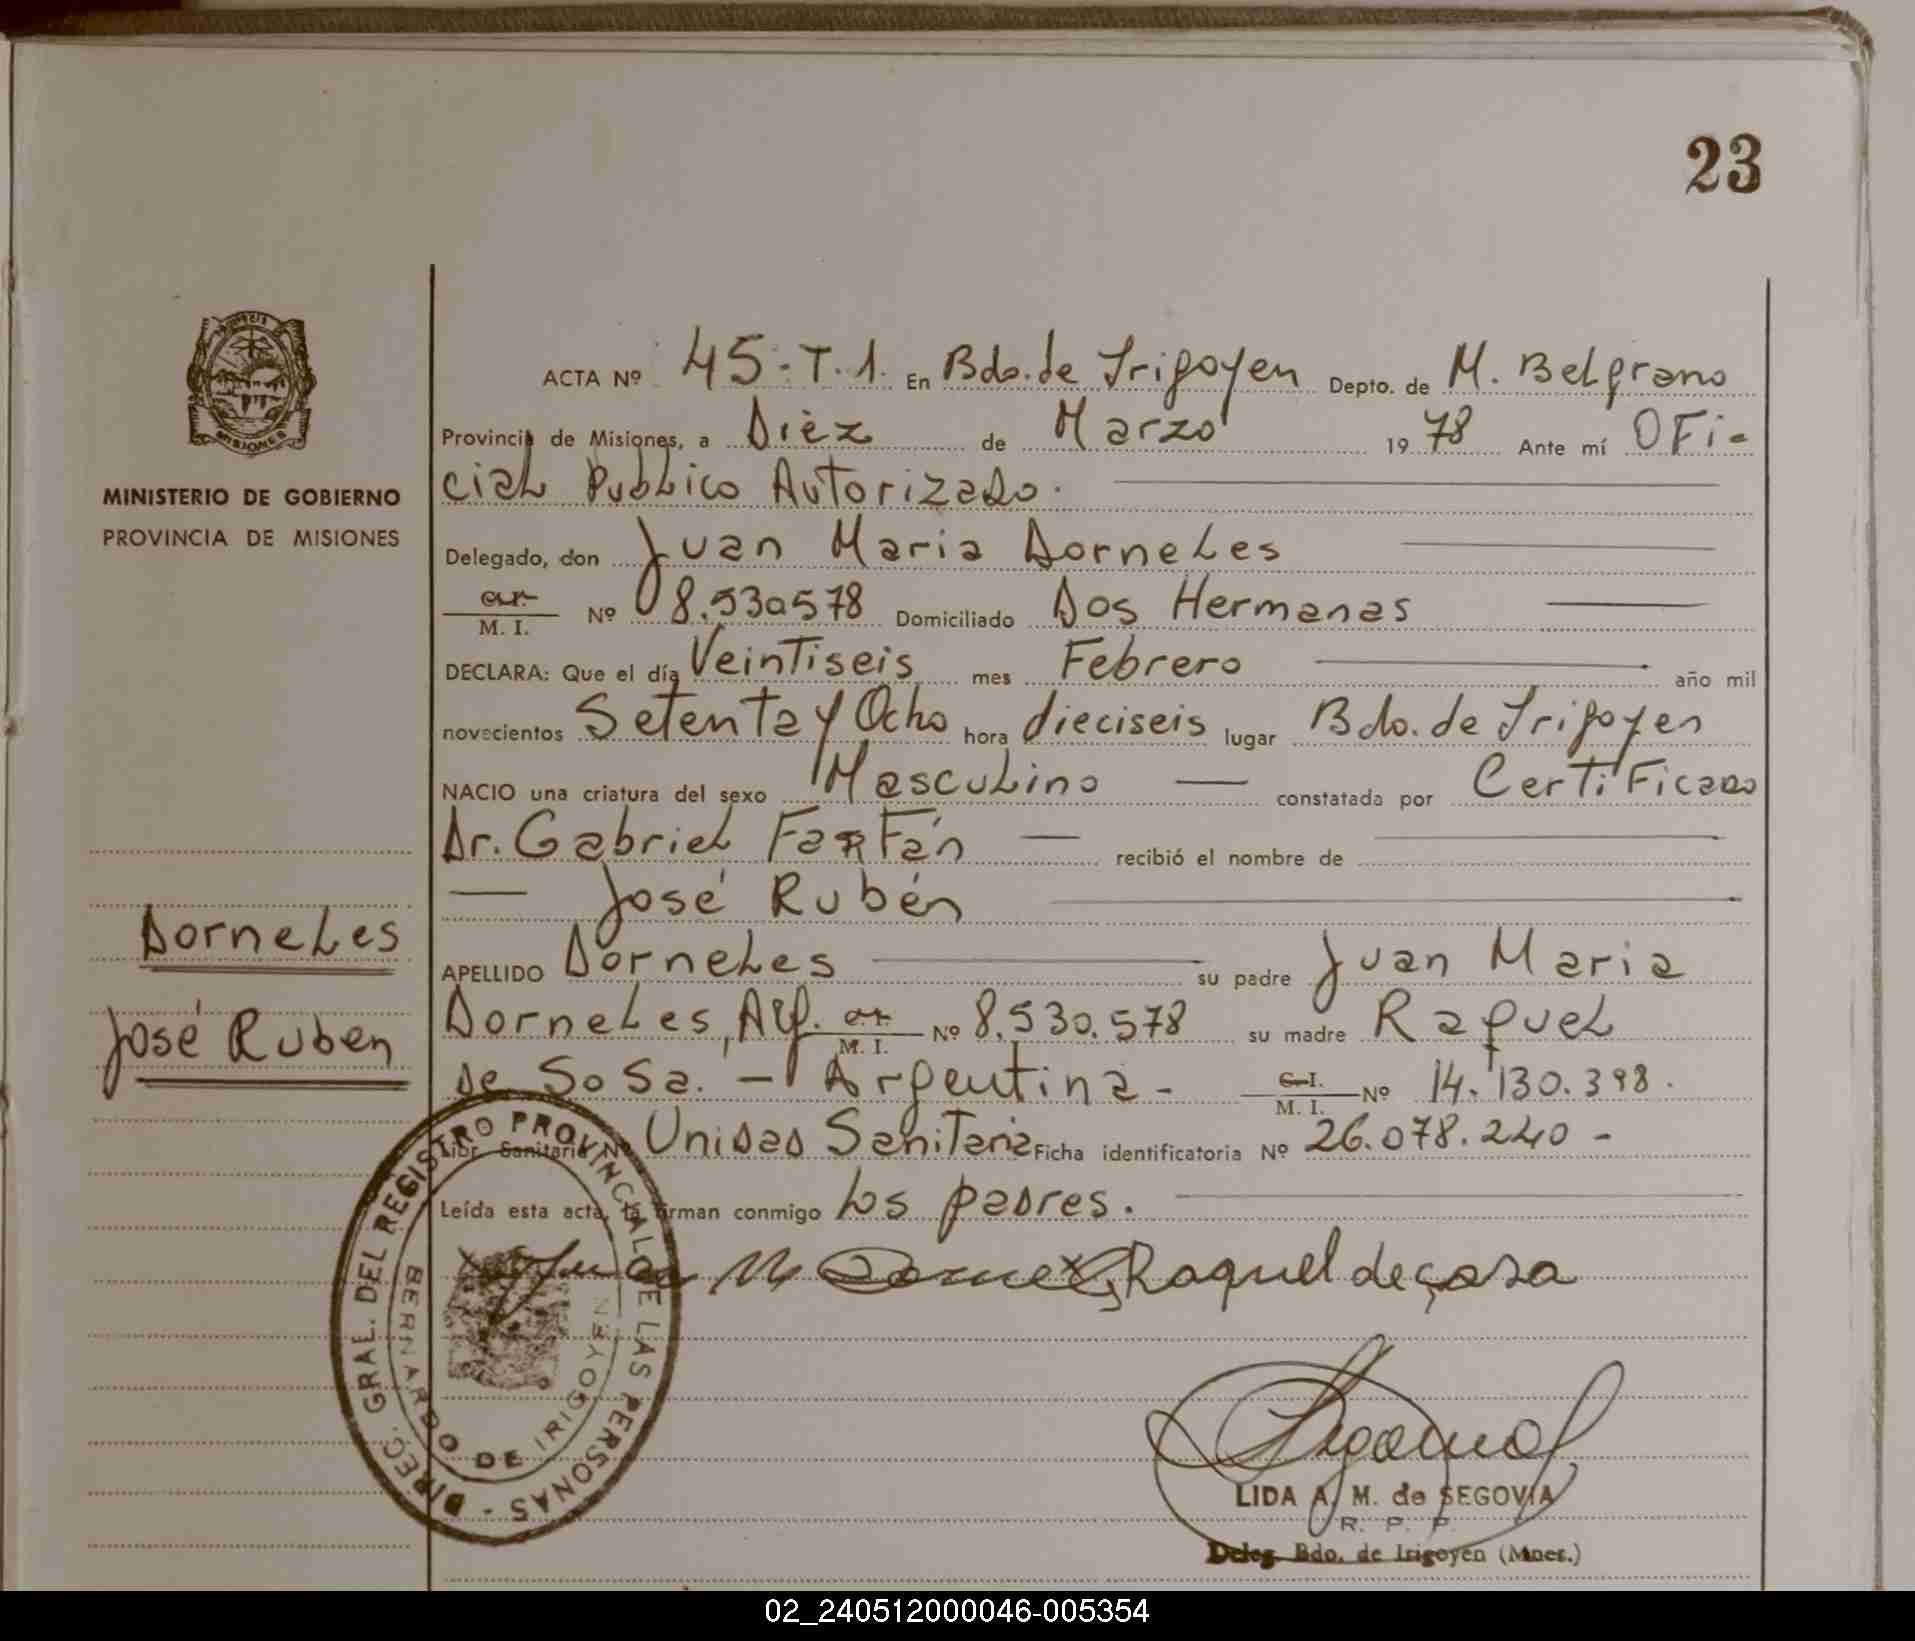 23
MISIONES
MINISTERIO DE GOBIERNO
PROVINCIA DE MISIONES
Dorneles
José Ruben
ACTA Nº 45-T.1. En Bdo. de Irigoyen Depto. de M. Belgrano
Provincia de Misiones, a Diez de Marzo 1978 Ante mí OFi-
cial Publico Autorizado.
Delegado, don Juan Maria Dorneles
M. I. Nº 8.530578 Domiciliado Dos Hermanas
DECLARA: Que el día Veintiseis mes Febrero año mil
novecientos Setenta y Ocho hora dieciseis lugar Bdo. de Irigoyen
NACIO una criatura del sexo Masculino constatada por Certificado
Dr. Gabriel Farfán recibió el nombre de
José Rubén
APELLIDO Dorneles su padre Juan Maria
Dorneles, Arg. C.I. M. I. Nº 8.530.578 su madre Raquel
de Sosa. - Argentina - C.I. M. I. Nº 14.130.398.
Libr. Sanitaria Nº Unidad Sanitaria Ficha identificatoria Nº 26.078.240 -
Leída esta acta, la firman conmigo los padres.
Raquel de çosa
DIREC. GRAL. DEL REGISTRO PROVINCIAL DE LAS PERSONAS -
BERNARDO DE IRIGOYEN
LIDA A. M. de SEGOVIA
R. P. P.
Deleg. Bdo. de Irigoyen (Mnes.)
02_240512000046-005354